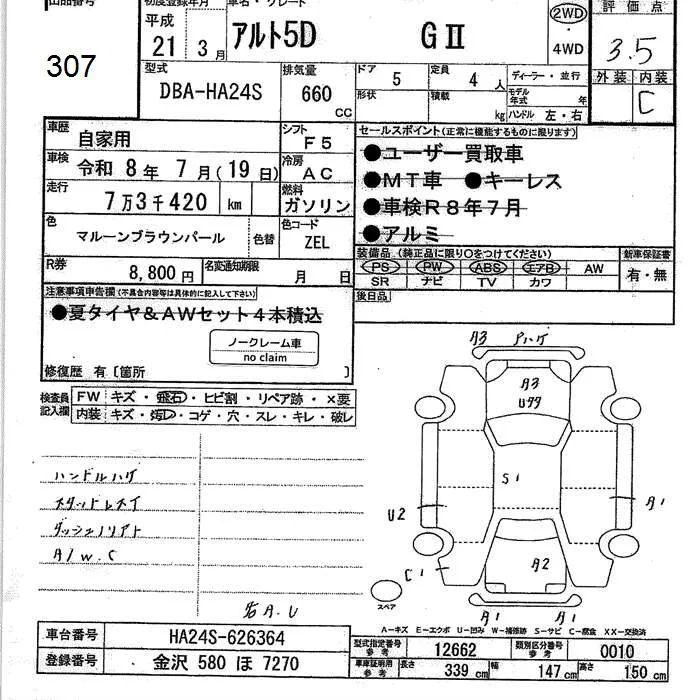 出品番号 初度登録年月 車名・グレード 評価点
307 平成 21 3月 アルト5D GⅡ 2WD・4WD 3.5
外装 内装 C
型式 排気量 ドア 5 定員 4人 ディーラー・並行
DBA-HA24S 660cc 形状 積載 kg モデル年式 年
ハンドル 左・右
車歴 自家用 シフト F5
車検 令和8年7月(19日) 冷房 AC
走行 7万3千420 km 燃料 ガソリン
色 マルーンブラウンパール 色替 色コード ZEL
R券 8,800円 名変通知期限 月 日
セールスポイント(正常に機能するものに限ります)
●ユーザー買取車
●MT車 ●キーレス
●車検R8年7月
●アルミ
装備品(純正品に限り○をつけてください) 新車保証書
PS PW ABS エアB AW 有・無
SR ナビ TV カワ
後日品
注意事項申告欄(不具合内容等は具体的に記入して下さい)
●夏タイヤ&AWセット4本積込
ノークレーム車
no claim
修復歴 有〔箇所 〕
検査員記入欄 FW キズ・飛石・ヒビ割・リペア跡・×要
内装 キズ・汚レ・コゲ・穴・スレ・キレ・破レ
ハンドルハゲ
A/W.C
A3
A3
S1
U2 A1
A2
C1
スペア
A1 A1
A-キズ E-エクボ U-凹み W-補修跡 S-サビ C-腐食 XX-交換済
車台番号 HA24S-626364
登録番号 金沢 580 ほ 7270
型式指定番号 参考 12662 類別区分番号 参考 0010
車庫証明用 参考 長さ 339cm 幅 147cm 高さ 150cm